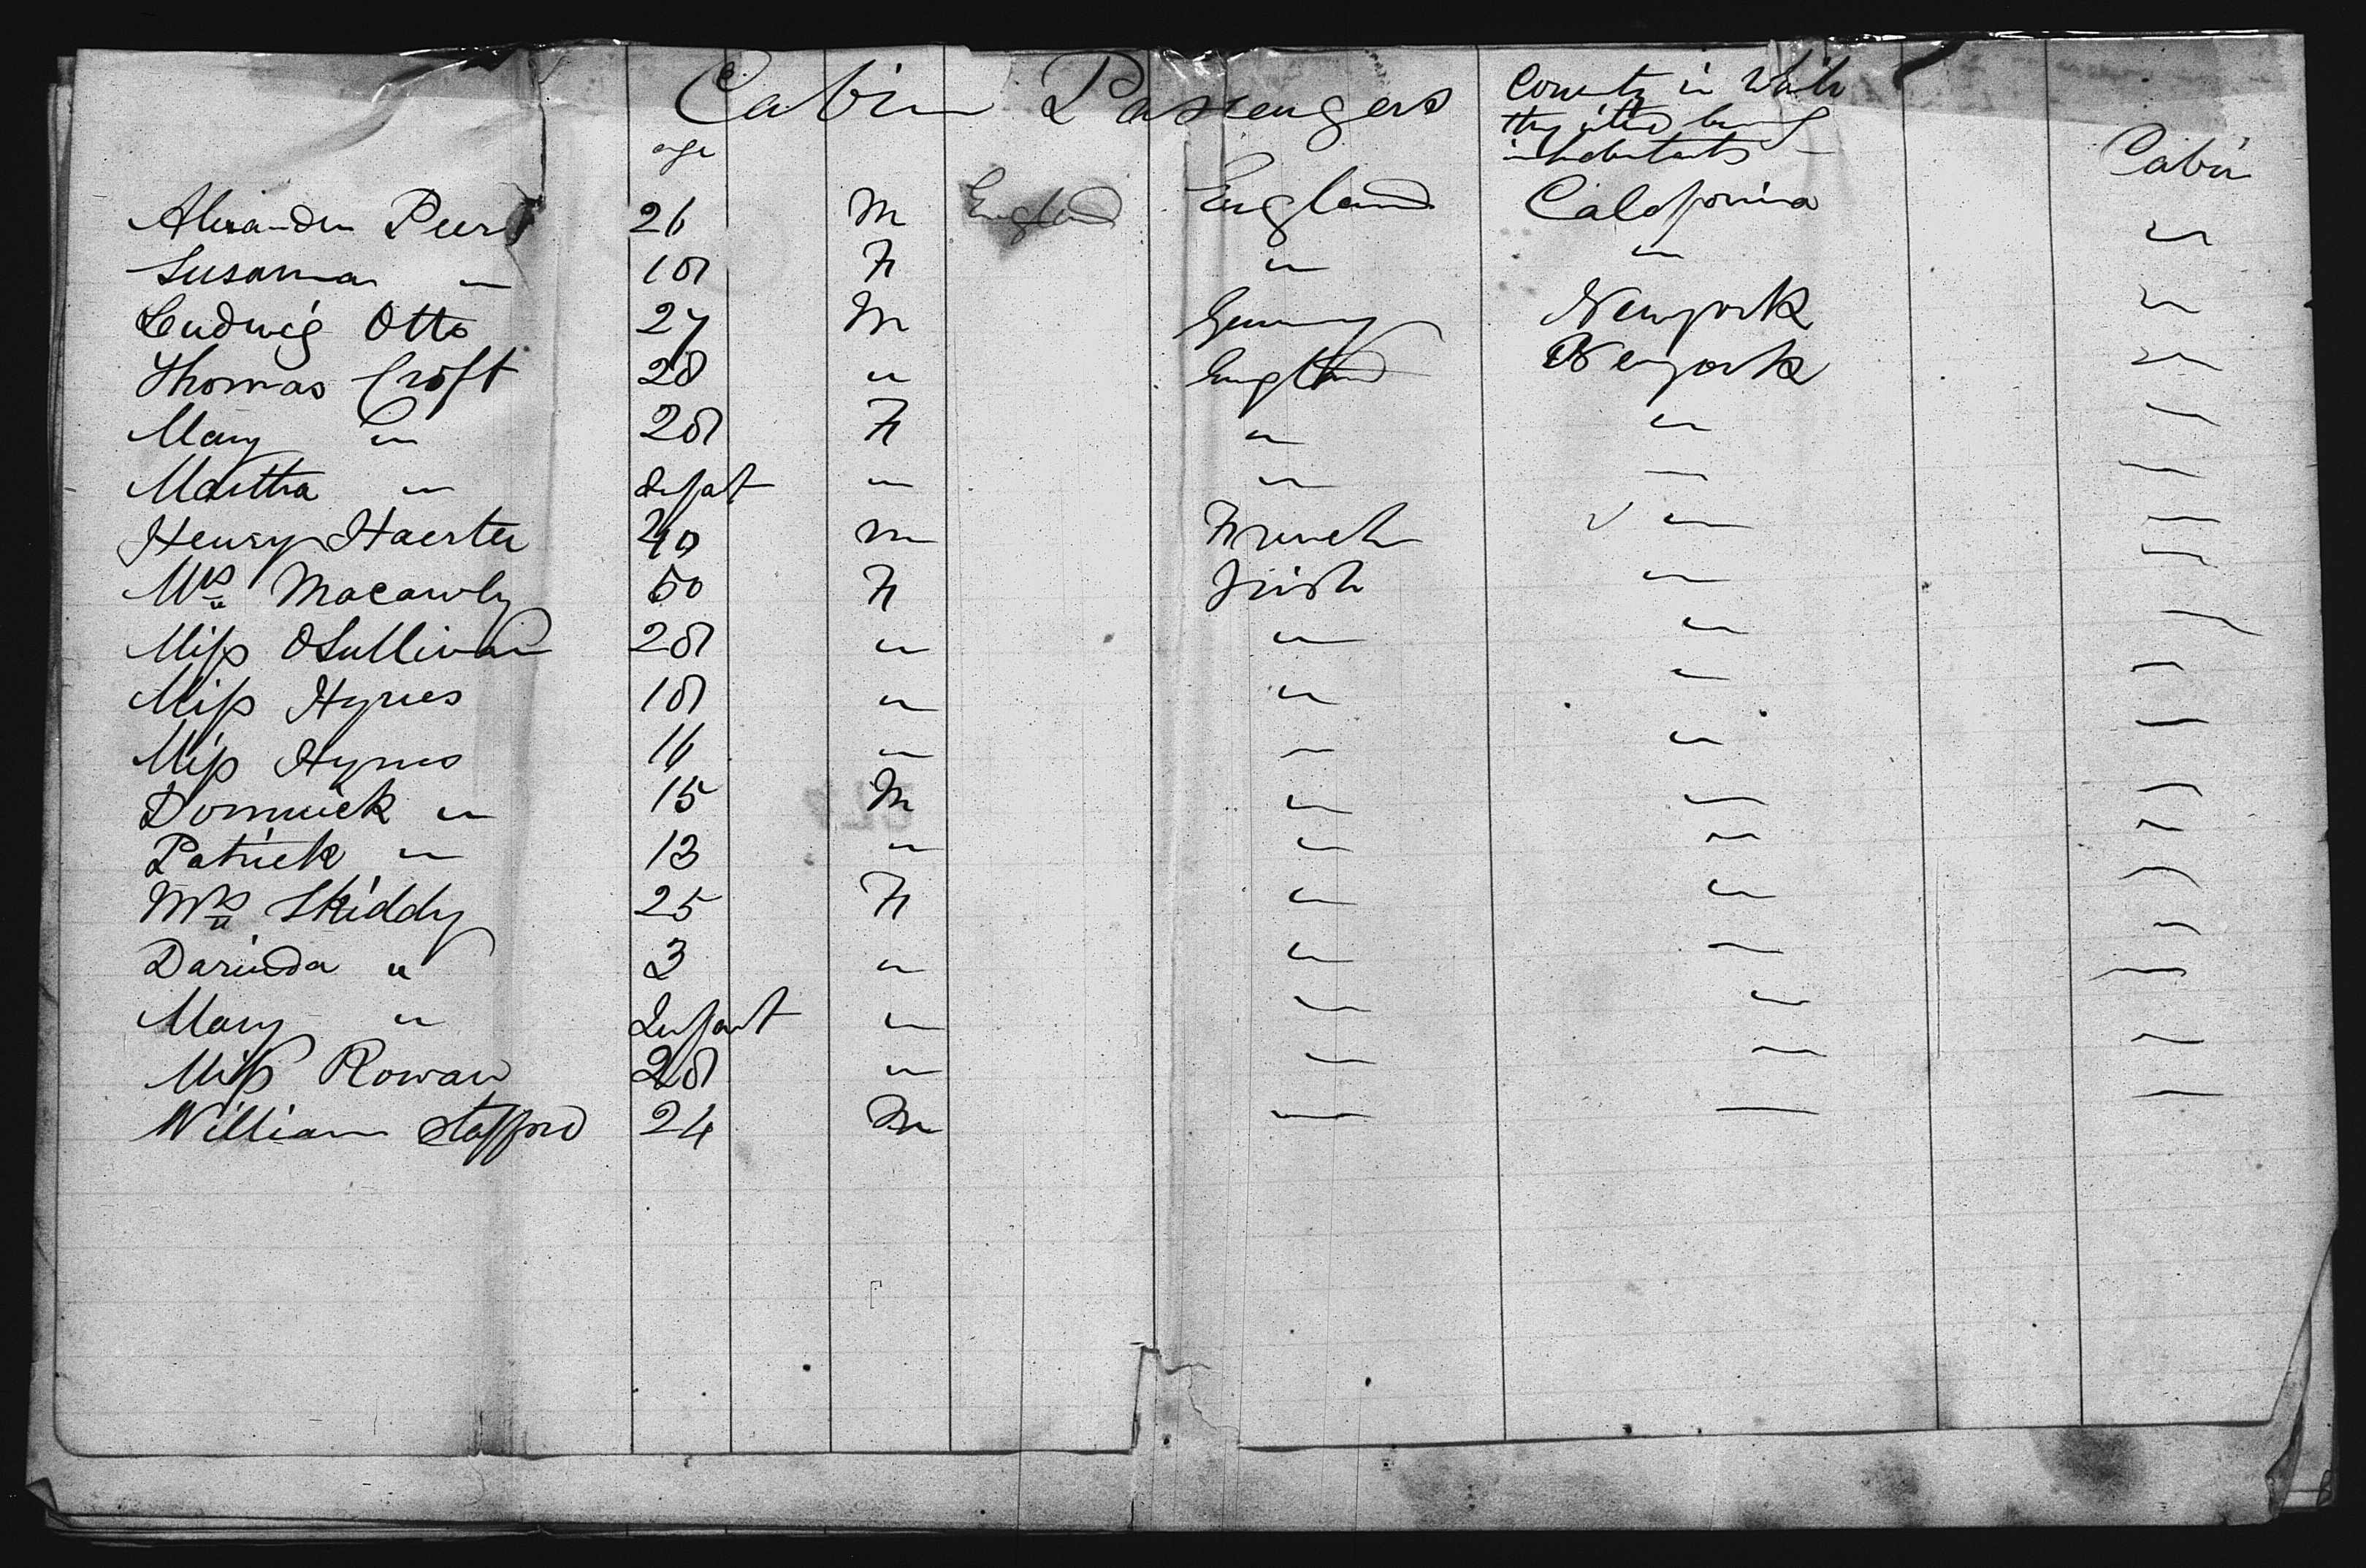 Cabin Passengers
County in Which
they intend being
inhabitants -
age
Cabin
Alexander Peers 26 M England England California
Susanna " 18 F " " "
Ludwig Otto 27 M Germany Newyork "
Thomas Croft 28 " England Newyork "
Mary " 28 F " " "
Martha " Infant " " " "
Henry Haerter 40 m French " "
Mrs Macawly 50 F Irish " "
Miss OSullivan 28 " " " "
Miss Hynes 18 " " " "
Miss Hynes 16 " " " "
Dominick " 15 M " " "
Patrick " 13 " " " "
Mrs Skiddy 25 F " " "
Darinda " 3 " " " "
Mary " Infant " " " "
Miss Rowan 28 " " " "
William Stafford 24 M " " "